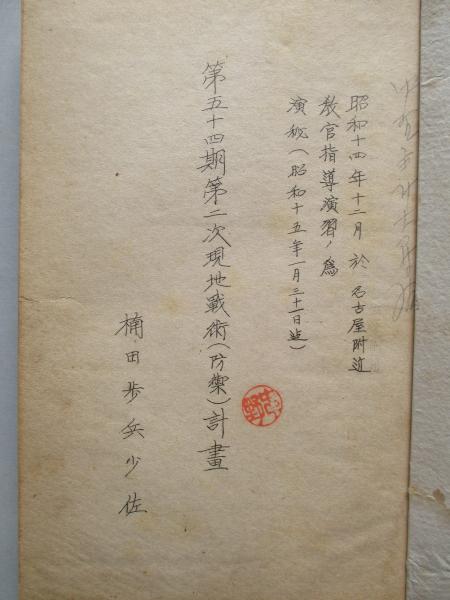 昭和十四年十二月於名古屋附近
教官指導演習ノ為
演秘(昭和十五年一月三十一日迄)
第五十四期第二次現地戰術(防禦)計畫
楠田歩兵少佐